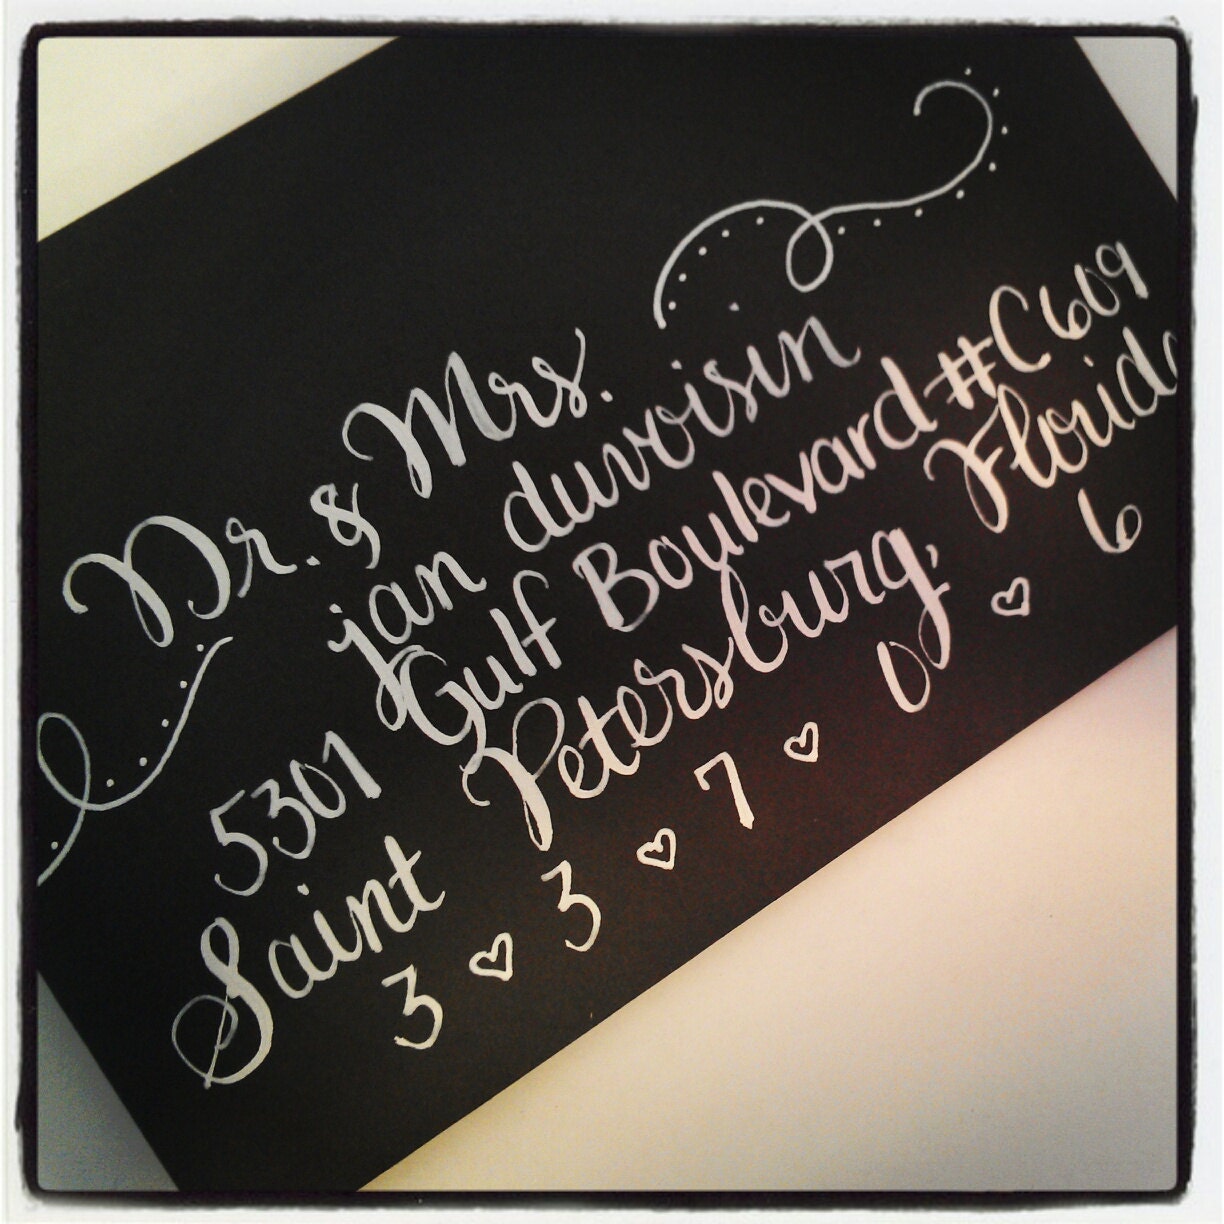 Dr. & Mrs.
jan duvoisin
5301 Gulf Boulevard #C609
Saint Petersburg, Florida
3 ♡ 3 ♡ 7 ♡ 0 ♡ 6